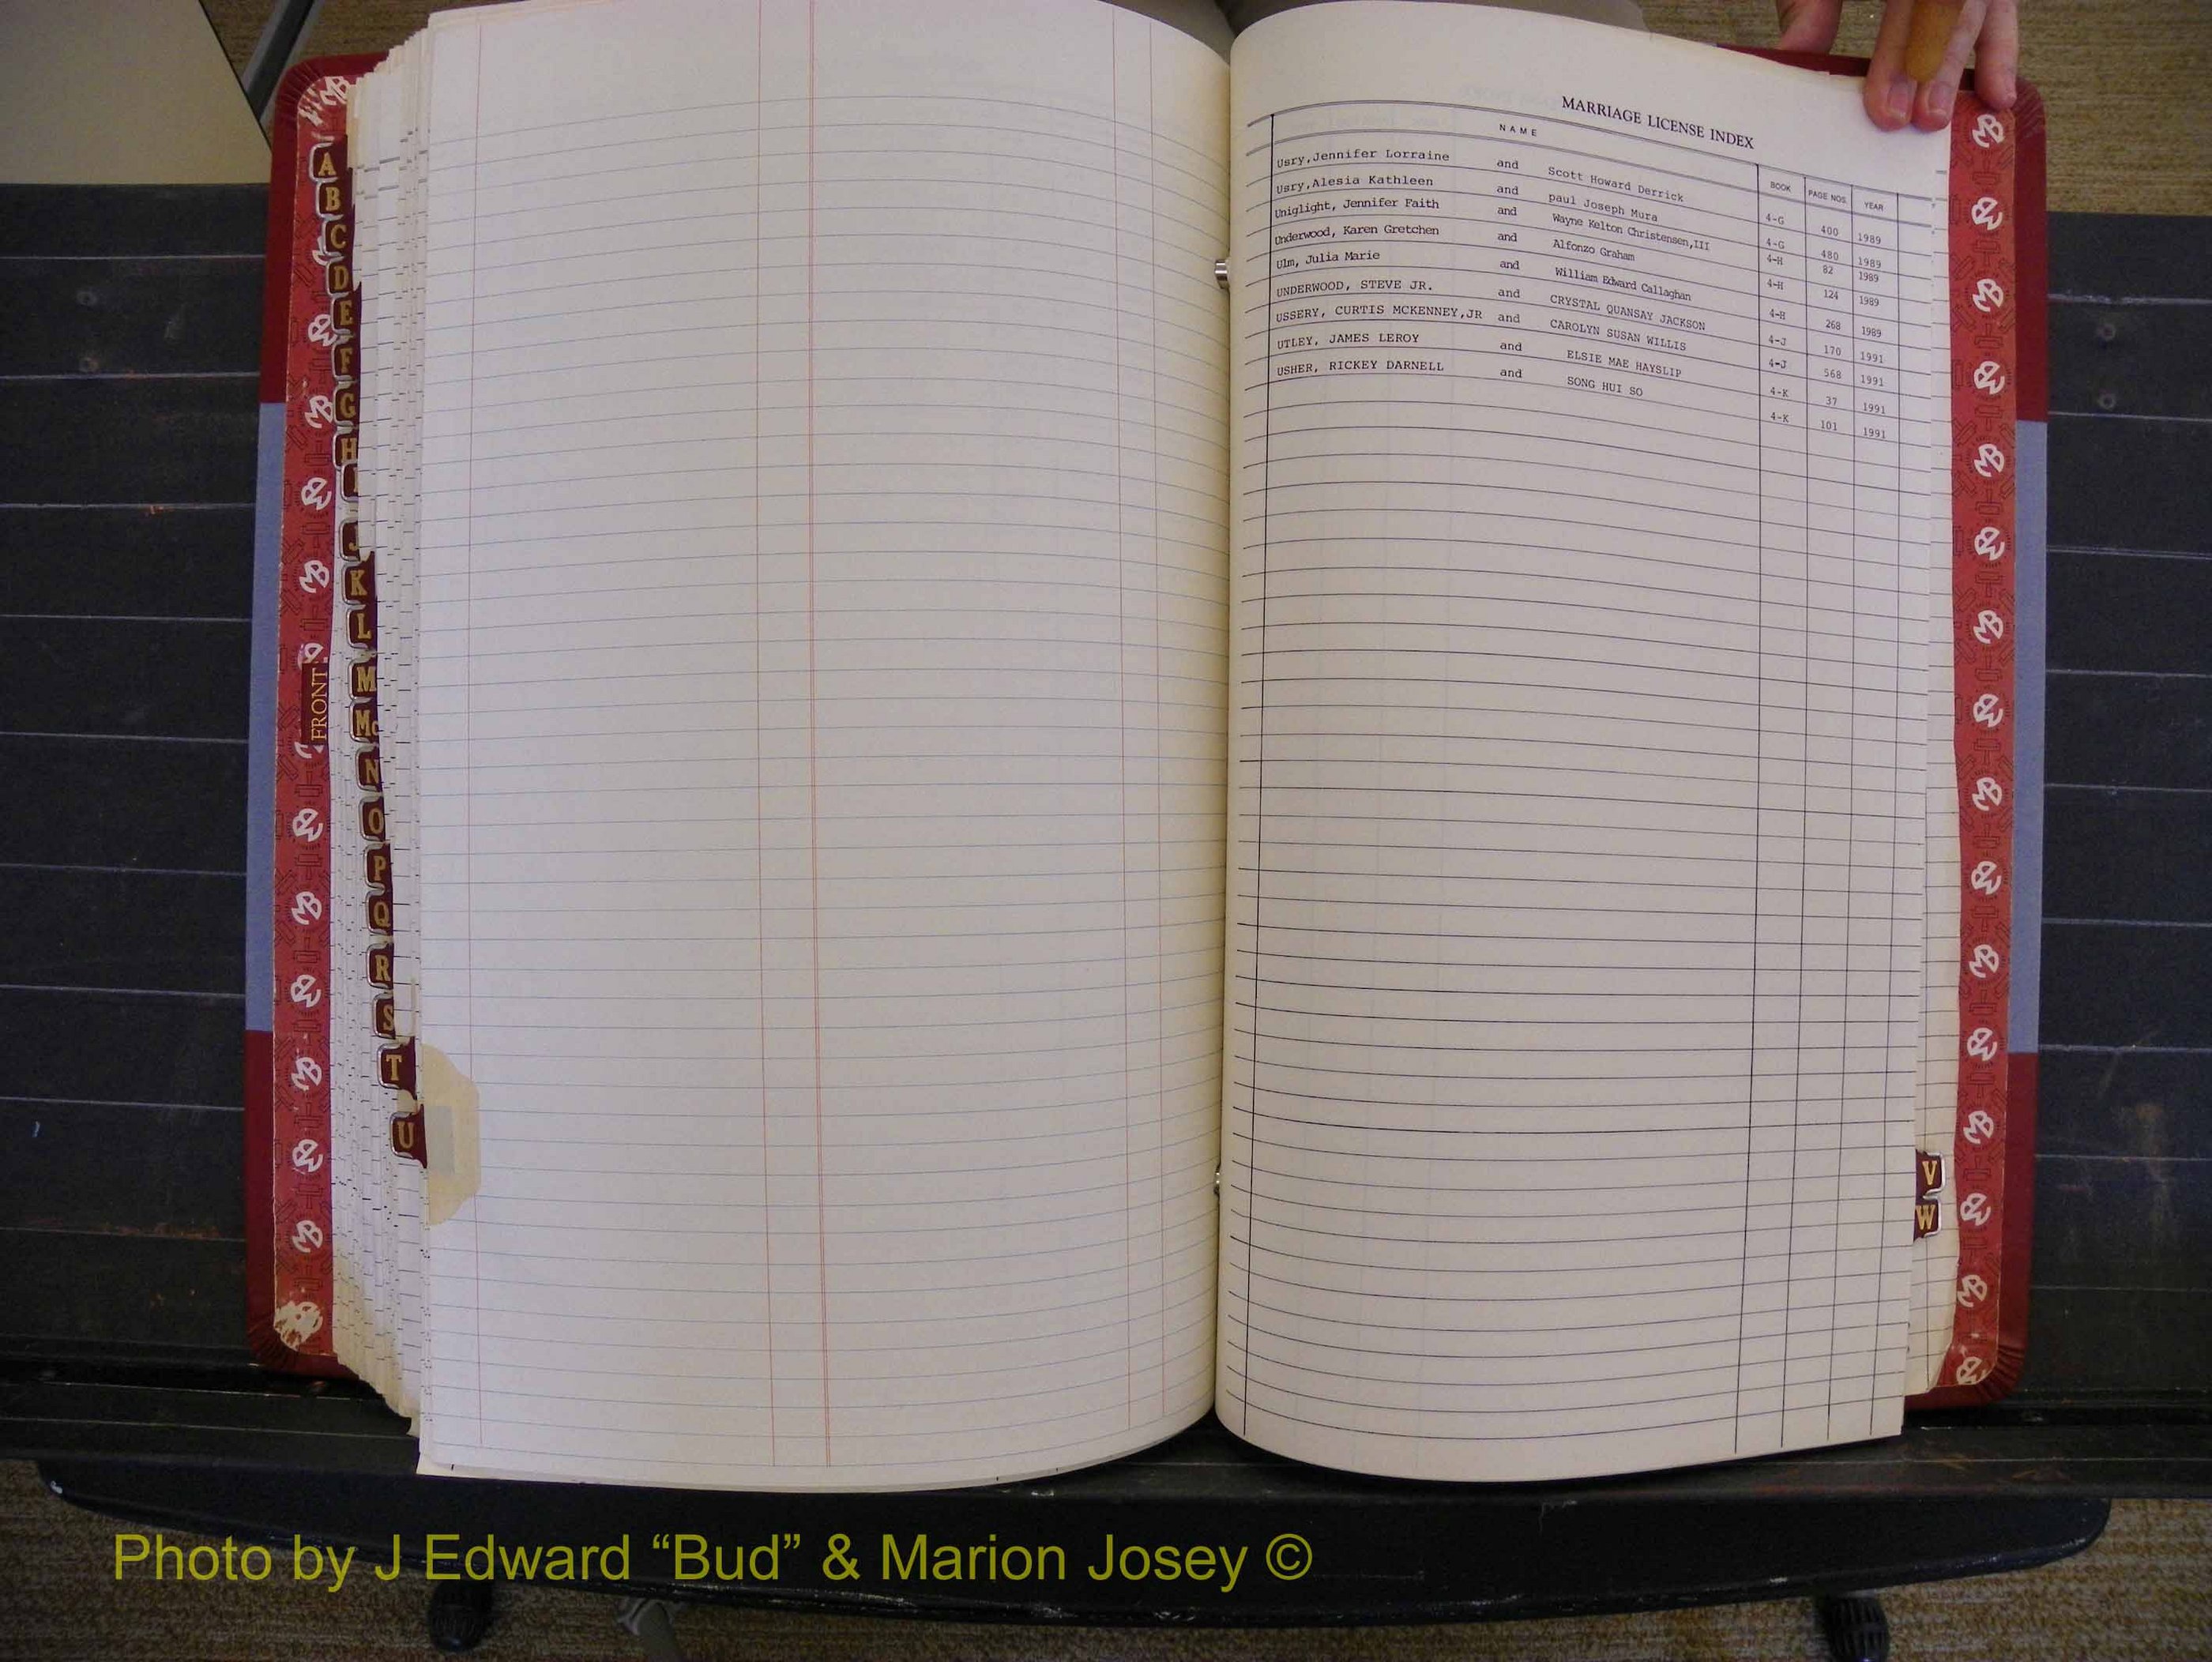 MARRIAGE LICENSE INDEX
NAME BOOK PAGE NOS. YEAR
Usry,Jennifer Lorraine and Scott Howard Derrick 4-G 400 1989
Usry,Alesia Kathleen and paul Joseph Mura 4-G 480 1989
Uniglight, Jennifer Faith and Wayne Kelton Christensen,III 4-H 82 1989
Underwood, Karen Gretchen and Alfonzo Graham 4-H 124 1989
Ulm, Julia Marie and William Edward Callaghan 4-H 268 1989
UNDERWOOD, STEVE JR. and CRYSTAL QUANSAY JACKSON 4-J 170 1991
USSERY, CURTIS MCKENNEY,JR and CAROLYN SUSAN WILLIS 4-J 568 1991
UTLEY, JAMES LEROY and ELSIE MAE HAYSLIP 4-K 37 1991
USHER, RICKEY DARNELL and SONG HUI SO 4-K 101 1991
A
B
C
D
E
F
G
H
I
J
K
L
M
Mc
N
O
P
Q
R
S
T
U
FRONT
V
W
Photo by J Edward “Bud” & Marion Josey ©